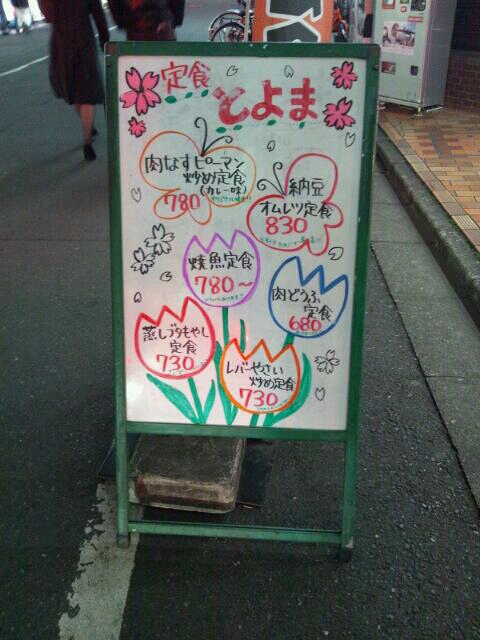 定食
とよま
肉なすピーマン
炒め定食
(カレー味)
780
納豆
オムレツ定食
830
焼魚定食
780～
肉どうふ
定食
680
蒸しブタもやし
定食
730
レバーやさい
炒め定食
730